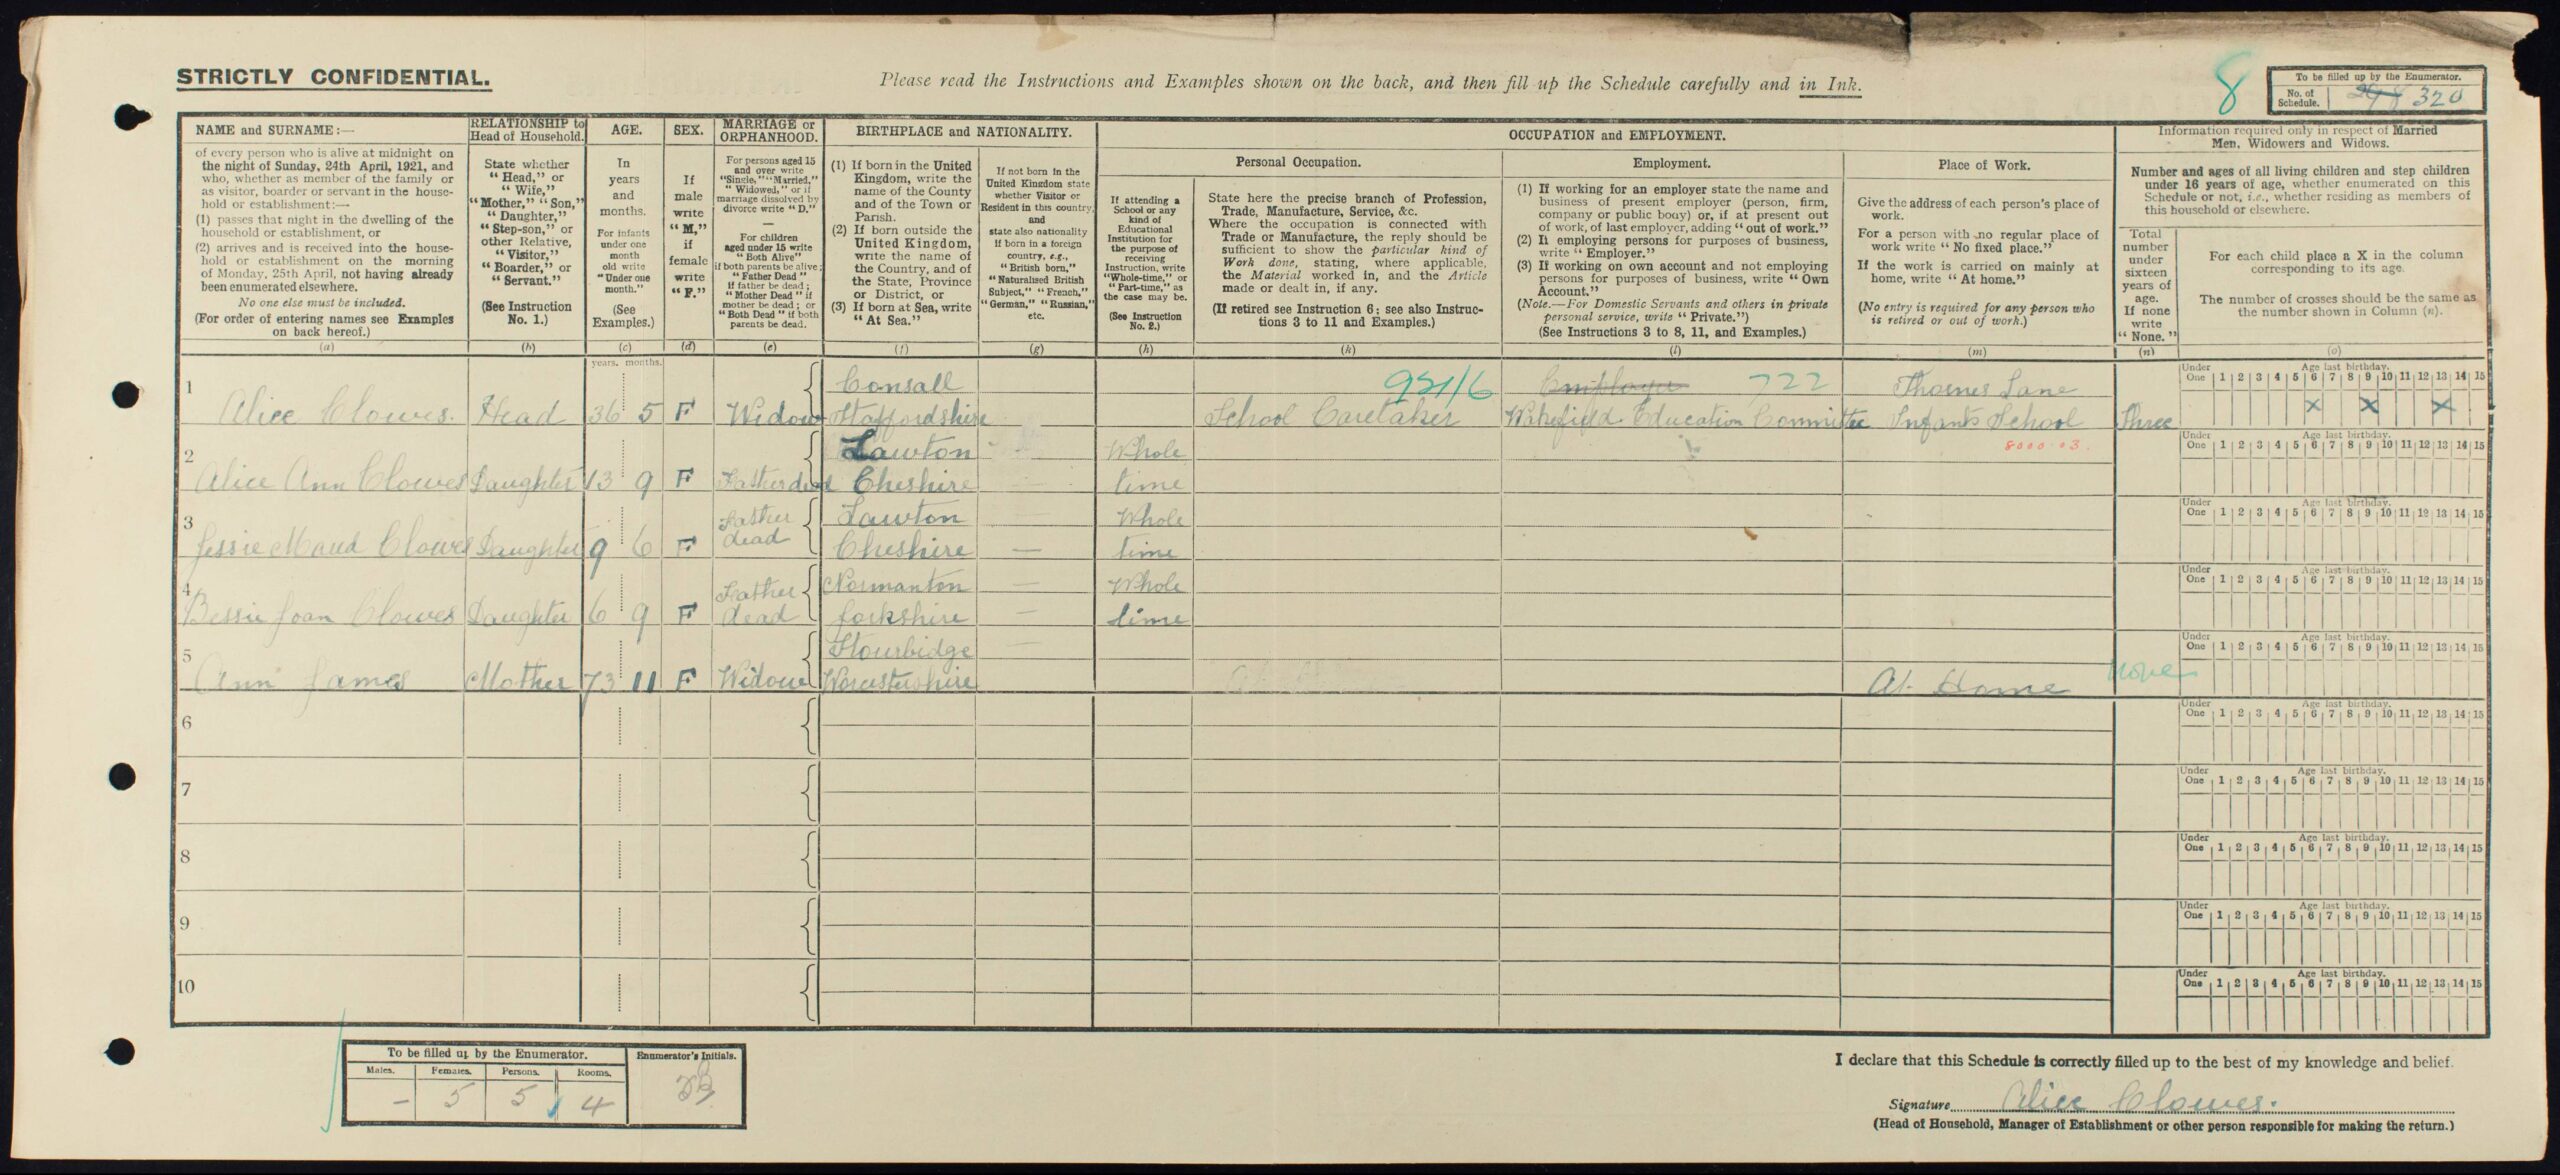 STRICTLY CONFIDENTIAL.
Please read the Instructions and Examples shown on the back, and then fill up the Schedule carefully and in Ink.
8
To be filled up by the Enumerator.
No. of Schedule. 320
NAME and SURNAME:—
of every person who is alive at midnight on
the night of Sunday, 24th April, 1921, and
who, whether as member of the family or
as visitor, boarder or servant in the house-
hold or establishment:—
(1) passes that night in the dwelling of the
household or establishment, or
(2) arrives and is received into the house-
hold or establishment on the morning
of Monday, 25th April, not having already
been enumerated elsewhere.
No one else must be included.
(For order of entering names see Examples
on back hereof.)
(a)
RELATIONSHIP to
Head of Household.
State whether
"Head," or
"Wife,"
"Mother," "Son,"
"Daughter,"
"Step-son," or
other Relative,
"Visitor,"
"Boarder," or
"Servant."
(See Instruction
No. 1.)
(b)
AGE.
In
years
and
months.
For infants
under one
month
old write
"Under one
month."
(See
Examples.)
(c)
SEX.
If
male
write
"M,"
if
female
write
"F."
(d)
MARRIAGE or
ORPHANHOOD.
For persons aged 15
and over write
"Single," "Married,"
"Widowed," or if
marriage dissolved by
divorce write "D."
—
For children
aged under 15 write
"Both Alive"
if both parents be alive;
"Father Dead"
if father be dead;
"Mother Dead" if
mother be dead; or
"Both Dead" if both
parents be dead.
(e)
BIRTHPLACE and NATIONALITY.
(1) If born in the United
Kingdom, write the
name of the County
and of the Town or
Parish.
(2) If born outside the
United Kingdom,
write the name of
the Country, and of
the State, Province
or District, or
(3) If born at Sea, write
"At Sea."
(f)
If not born in the
United Kingdom state
whether Visitor or
Resident in this country,
and
state also nationality
if born in a foreign
country, e.g.,
"British born,"
"Naturalised British
Subject," "French,"
"German," "Russian,"
etc.
(g)
OCCUPATION and EMPLOYMENT.
If attending a
School or any
kind of
Educational
Institution for
the purpose of
receiving
Instruction, write
"Whole-time," or
"Part-time," as
the case may be.
(See Instruction
No. 2.)
(h)
Personal Occupation.
State here the precise branch of Profession,
Trade, Manufacture, Service, &c.
Where the occupation is connected with
Trade or Manufacture, the reply should be
sufficient to show the particular kind of
Work done, stating, where applicable,
the Material worked in, and the Article
made or dealt in, if any.
(If retired see Instruction 6: see also Instruc-
tions 3 to 11 and Examples.)
(k)
Employment.
(1) If working for an employer state the name and
business of present employer (person, firm,
company or public body) or, if at present out
of work, of last employer, adding "out of work."
(2) If employing persons for purposes of business,
write "Employer."
(3) If working on own account and not employing
persons for purposes of business, write "Own
Account."
(Note.—For Domestic Servants and others in private
personal service, write "Private.")
(See Instructions 3 to 8, 11, and Examples.)
(l)
Place of Work.
Give the address of each person's place of
work.
For a person with no regular place of
work write "No fixed place."
If the work is carried on mainly at
home, write "At home."
(No entry is required for any person who
is retired or out of work.)
(m)
Information required only in respect of Married
Men, Widowers and Widows.
Number and ages of all living children and step children
under 16 years of age, whether enumerated on this
Schedule or not, i.e., whether residing as members of
this household or elsewhere.
Total
number
under
sixteen
years of
age.
If none
write
"None."
(n)
For each child place a X in the column
corresponding to its age.
The number of crosses should be the same as
the number shown in Column (n).
(o)
years. months.
Under One Age last birthday. 1 2 3 4 5 6 7 8 9 10 11 12 13 14 15
1 Consall 921/6 722 Thornes Lane
Alice Clowes. Head 36 5 F Widow Staffordshire School Caretaker Wakefield Education Committee Infants School Three X X X
8000.03.
Under One Age last birthday. 1 2 3 4 5 6 7 8 9 10 11 12 13 14 15
2 Lawton Whole
Alice Ann Clowes Daughter 13 9 F Father dead Cheshire time
Under One Age last birthday. 1 2 3 4 5 6 7 8 9 10 11 12 13 14 15
3 Father Lawton — Whole
Jessie Maud Clowes Daughter 9 6 F dead Cheshire — time
Under One Age last birthday. 1 2 3 4 5 6 7 8 9 10 11 12 13 14 15
4 Father Normanton — Whole
Bessie Joan Clowes Daughter 6 9 F dead Yorkshire — time
Under One Age last birthday. 1 2 3 4 5 6 7 8 9 10 11 12 13 14 15
5 Stourbidge —
Ann James Mother 73 11 F Widow Worcestershire At Home None
Under One Age last birthday. 1 2 3 4 5 6 7 8 9 10 11 12 13 14 15
6
Under One Age last birthday. 1 2 3 4 5 6 7 8 9 10 11 12 13 14 15
7
Under One Age last birthday. 1 2 3 4 5 6 7 8 9 10 11 12 13 14 15
8
Under One Age last birthday. 1 2 3 4 5 6 7 8 9 10 11 12 13 14 15
9
Under One Age last birthday. 1 2 3 4 5 6 7 8 9 10 11 12 13 14 15
10
To be filled up by the Enumerator.
Males. Females. Persons. Rooms.
— 5 5 4
Enumerator's Initials.
I declare that this Schedule is correctly filled up to the best of my knowledge and belief.
Signature Alice Clowes.
(Head of Household, Manager of Establishment or other person responsible for making the return.)